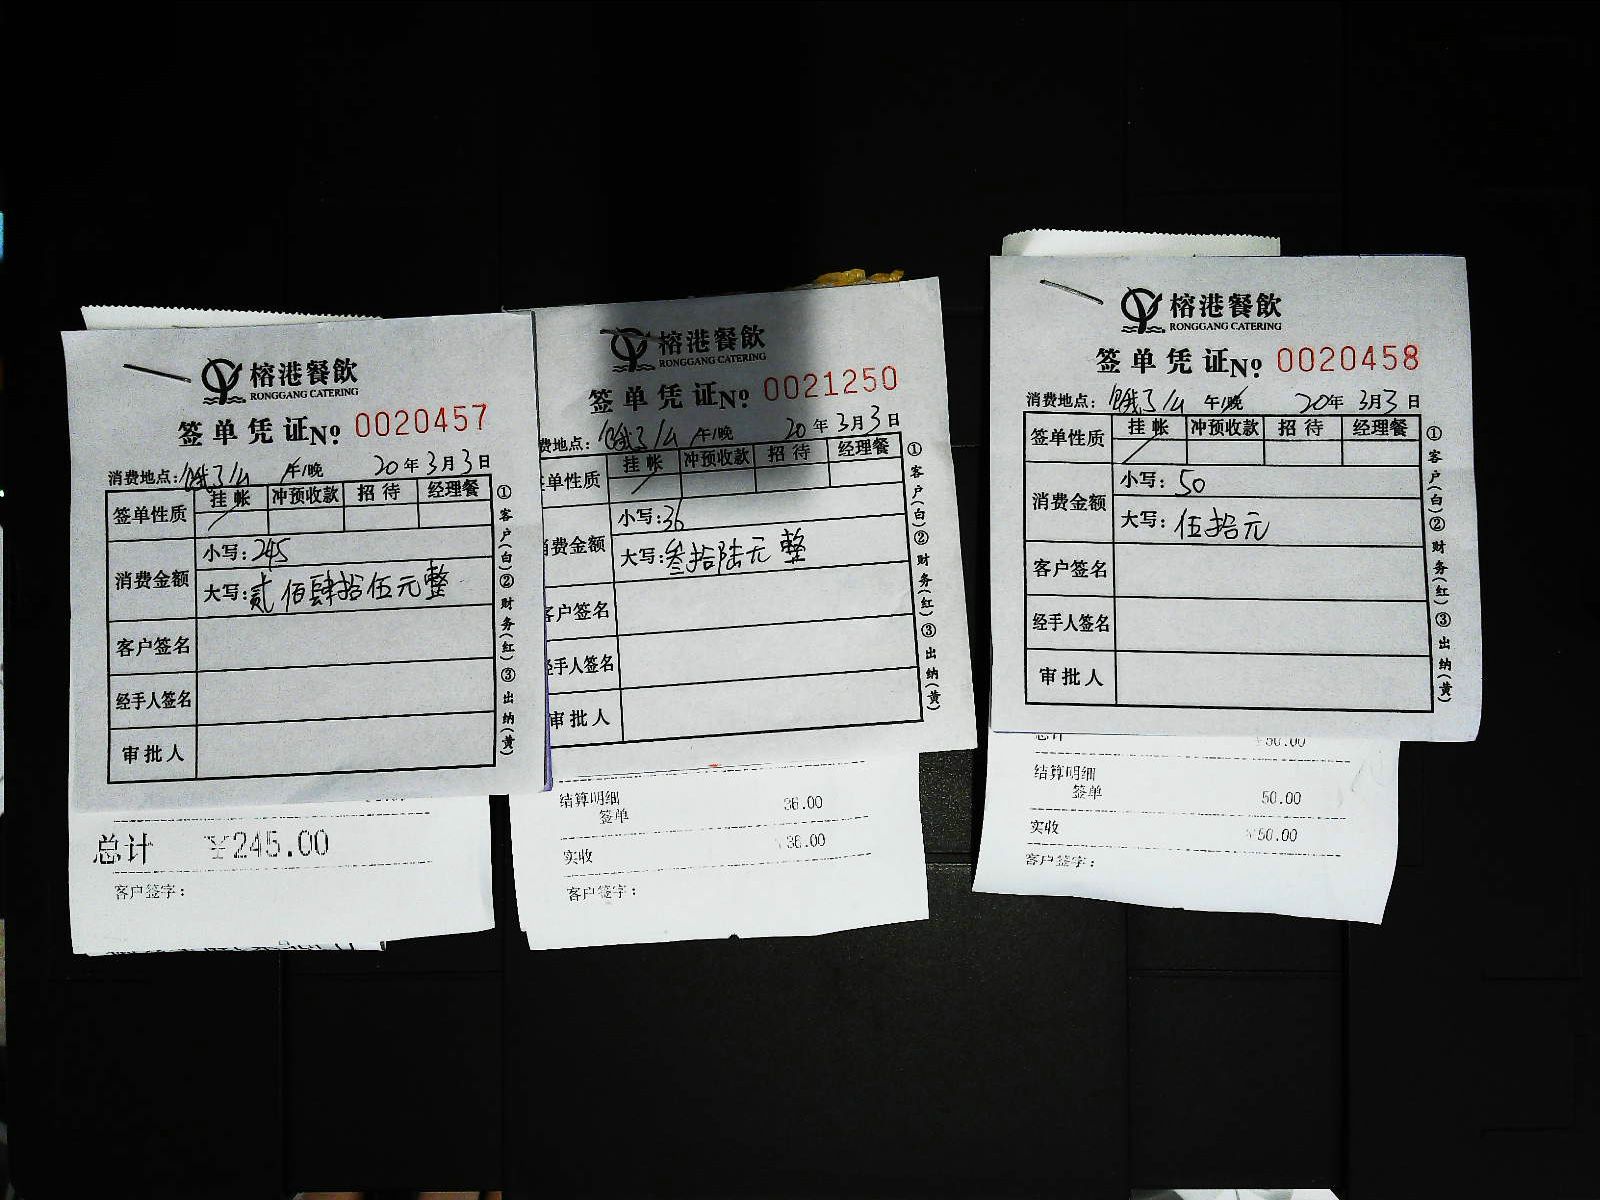 榕港餐飲
RONGGANG CATERING
签单凭证№ 0020457
消费地点:饿了么 午/晚 20年3月3日
签单性质 挂帐 冲预收款 招待 经理餐
消费金额
小写:245
大写:贰佰肆拾伍元整
客户签名
经手人签名
审批人
①客户(白)②财务(红)③出纳(黄)
总计 ¥245.00
客户签字:
榕港餐飲
RONGGANG CATERING
签单凭证№ 0021250
费地点:饿了么 午/晚 20年3月3日
单性质 挂帐 冲预收款 招待 经理餐
消费金额
小写:36
大写:叁拾陆元整
客户签名
经手人签名
审批人
①客户(白)②财务(红)③出纳(黄)
结算明细
签单 36.00
实收 ¥36.00
客户签字:
榕港餐飲
RONGGANG CATERING
签单凭证№ 0020458
消费地点:饿了么 午/晚 20年3月3日
签单性质 挂帐 冲预收款 招待 经理餐
消费金额
小写:50
大写:伍拾元
客户签名
经手人签名
审批人
①客户(白)②财务(红)③出纳(黄)
总计 ¥50.00
结算明细
签单 50.00
实收 ¥50.00
客户签字: